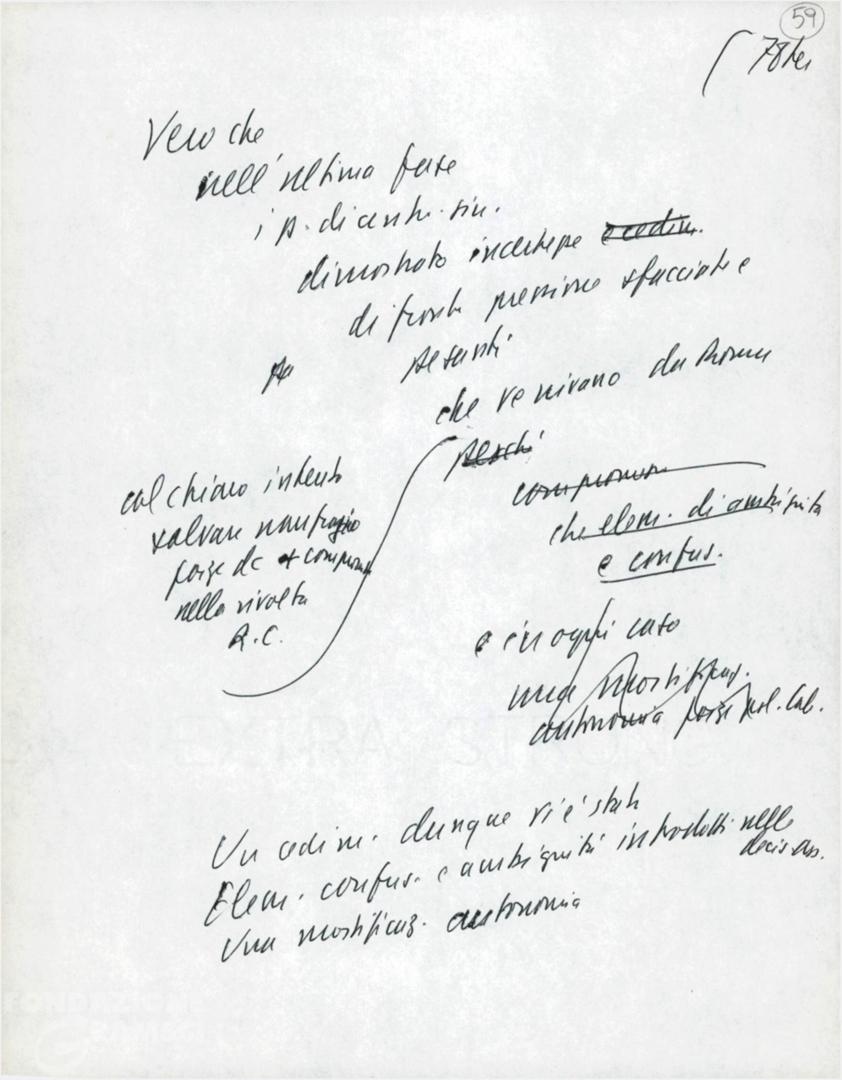 59
78 ter
Vero che
nell'ultima fase
i p. di centr. sin.
dimostrato incertezze e cedim.
di fronte pressione sfacciate e
pesanti
che venivano da Roma
perchè
col chiaro intento
salvare naufragio
forze dc + comprom
nella rivolta
R.C.
comprom
che elem. di ambiguità
e confus.
e in ogni caso
una mortificaz.
autonomia forze pol. Cal.
Un cedim. dunque vi è stato
Elem. confus. e ambiguità introdotti nelle
decis. ass.
Una mortificaz. autonomia
FONDAZIONE
GRAMSCI
EXTRA STRONG